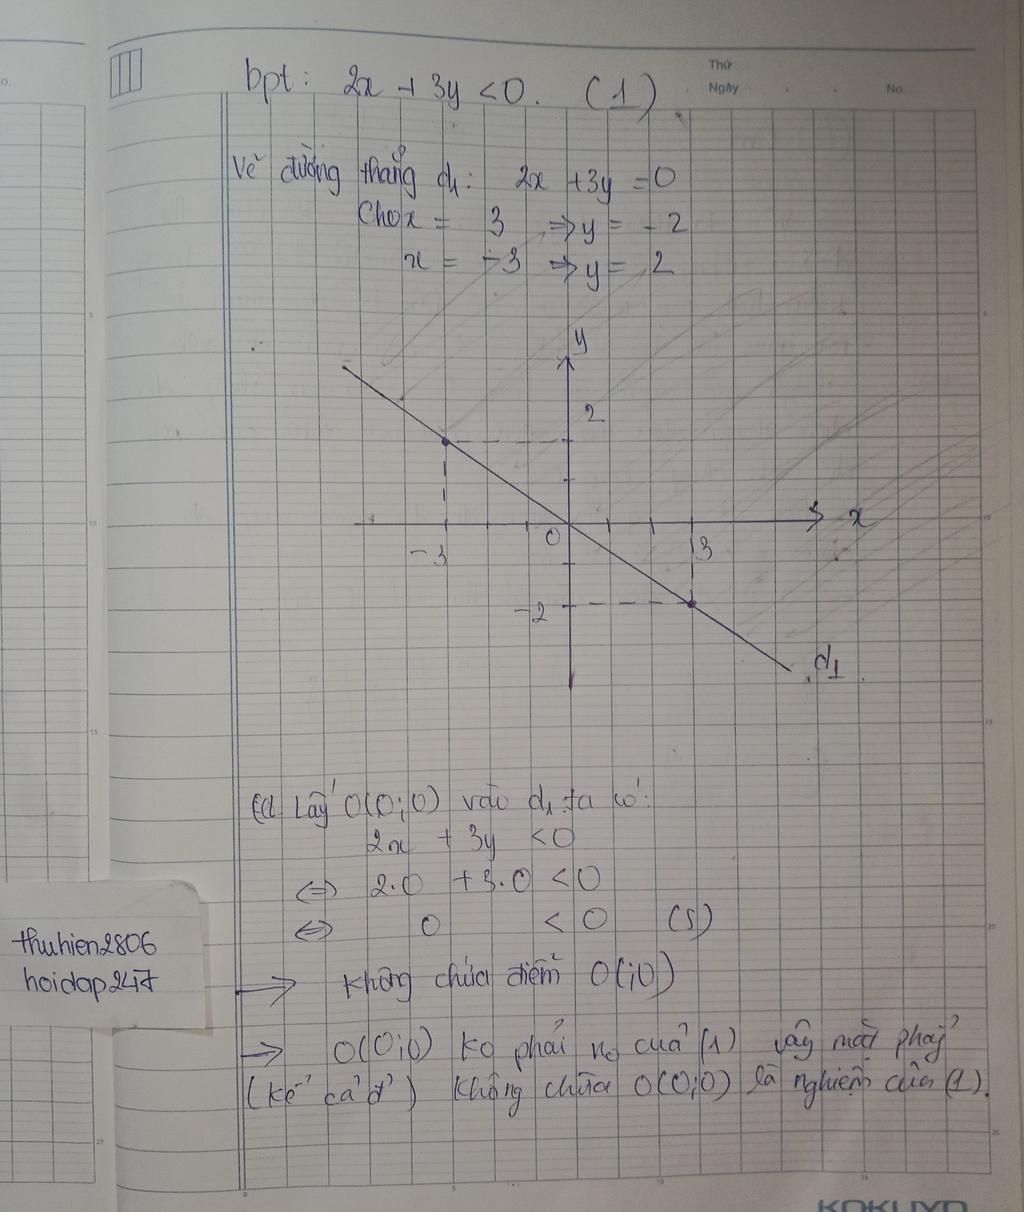 Thứ
Ngày
No.
bpt: 2x + 3y < 0. (1)
Vẽ đường thẳng d1: 2x + 3y = 0
Cho x = 3 => y = -2
x = -3 => y = 2
y
2
x
0
-3
3
-2
d1
Lấy O(0;0) vào d1 ta có:
2x + 3y < 0
<=> 2.0 + 3.0 < 0
<=> 0 < 0 (S)
thuhien2806
hoidap247
→ Không chứa điểm O(;0)
→ O(0;0) ko phải no của (1) vậy mặt phẳg
(kể cả đ') không chứa O(0;0) là nghiệm của (1).
KOKUYO